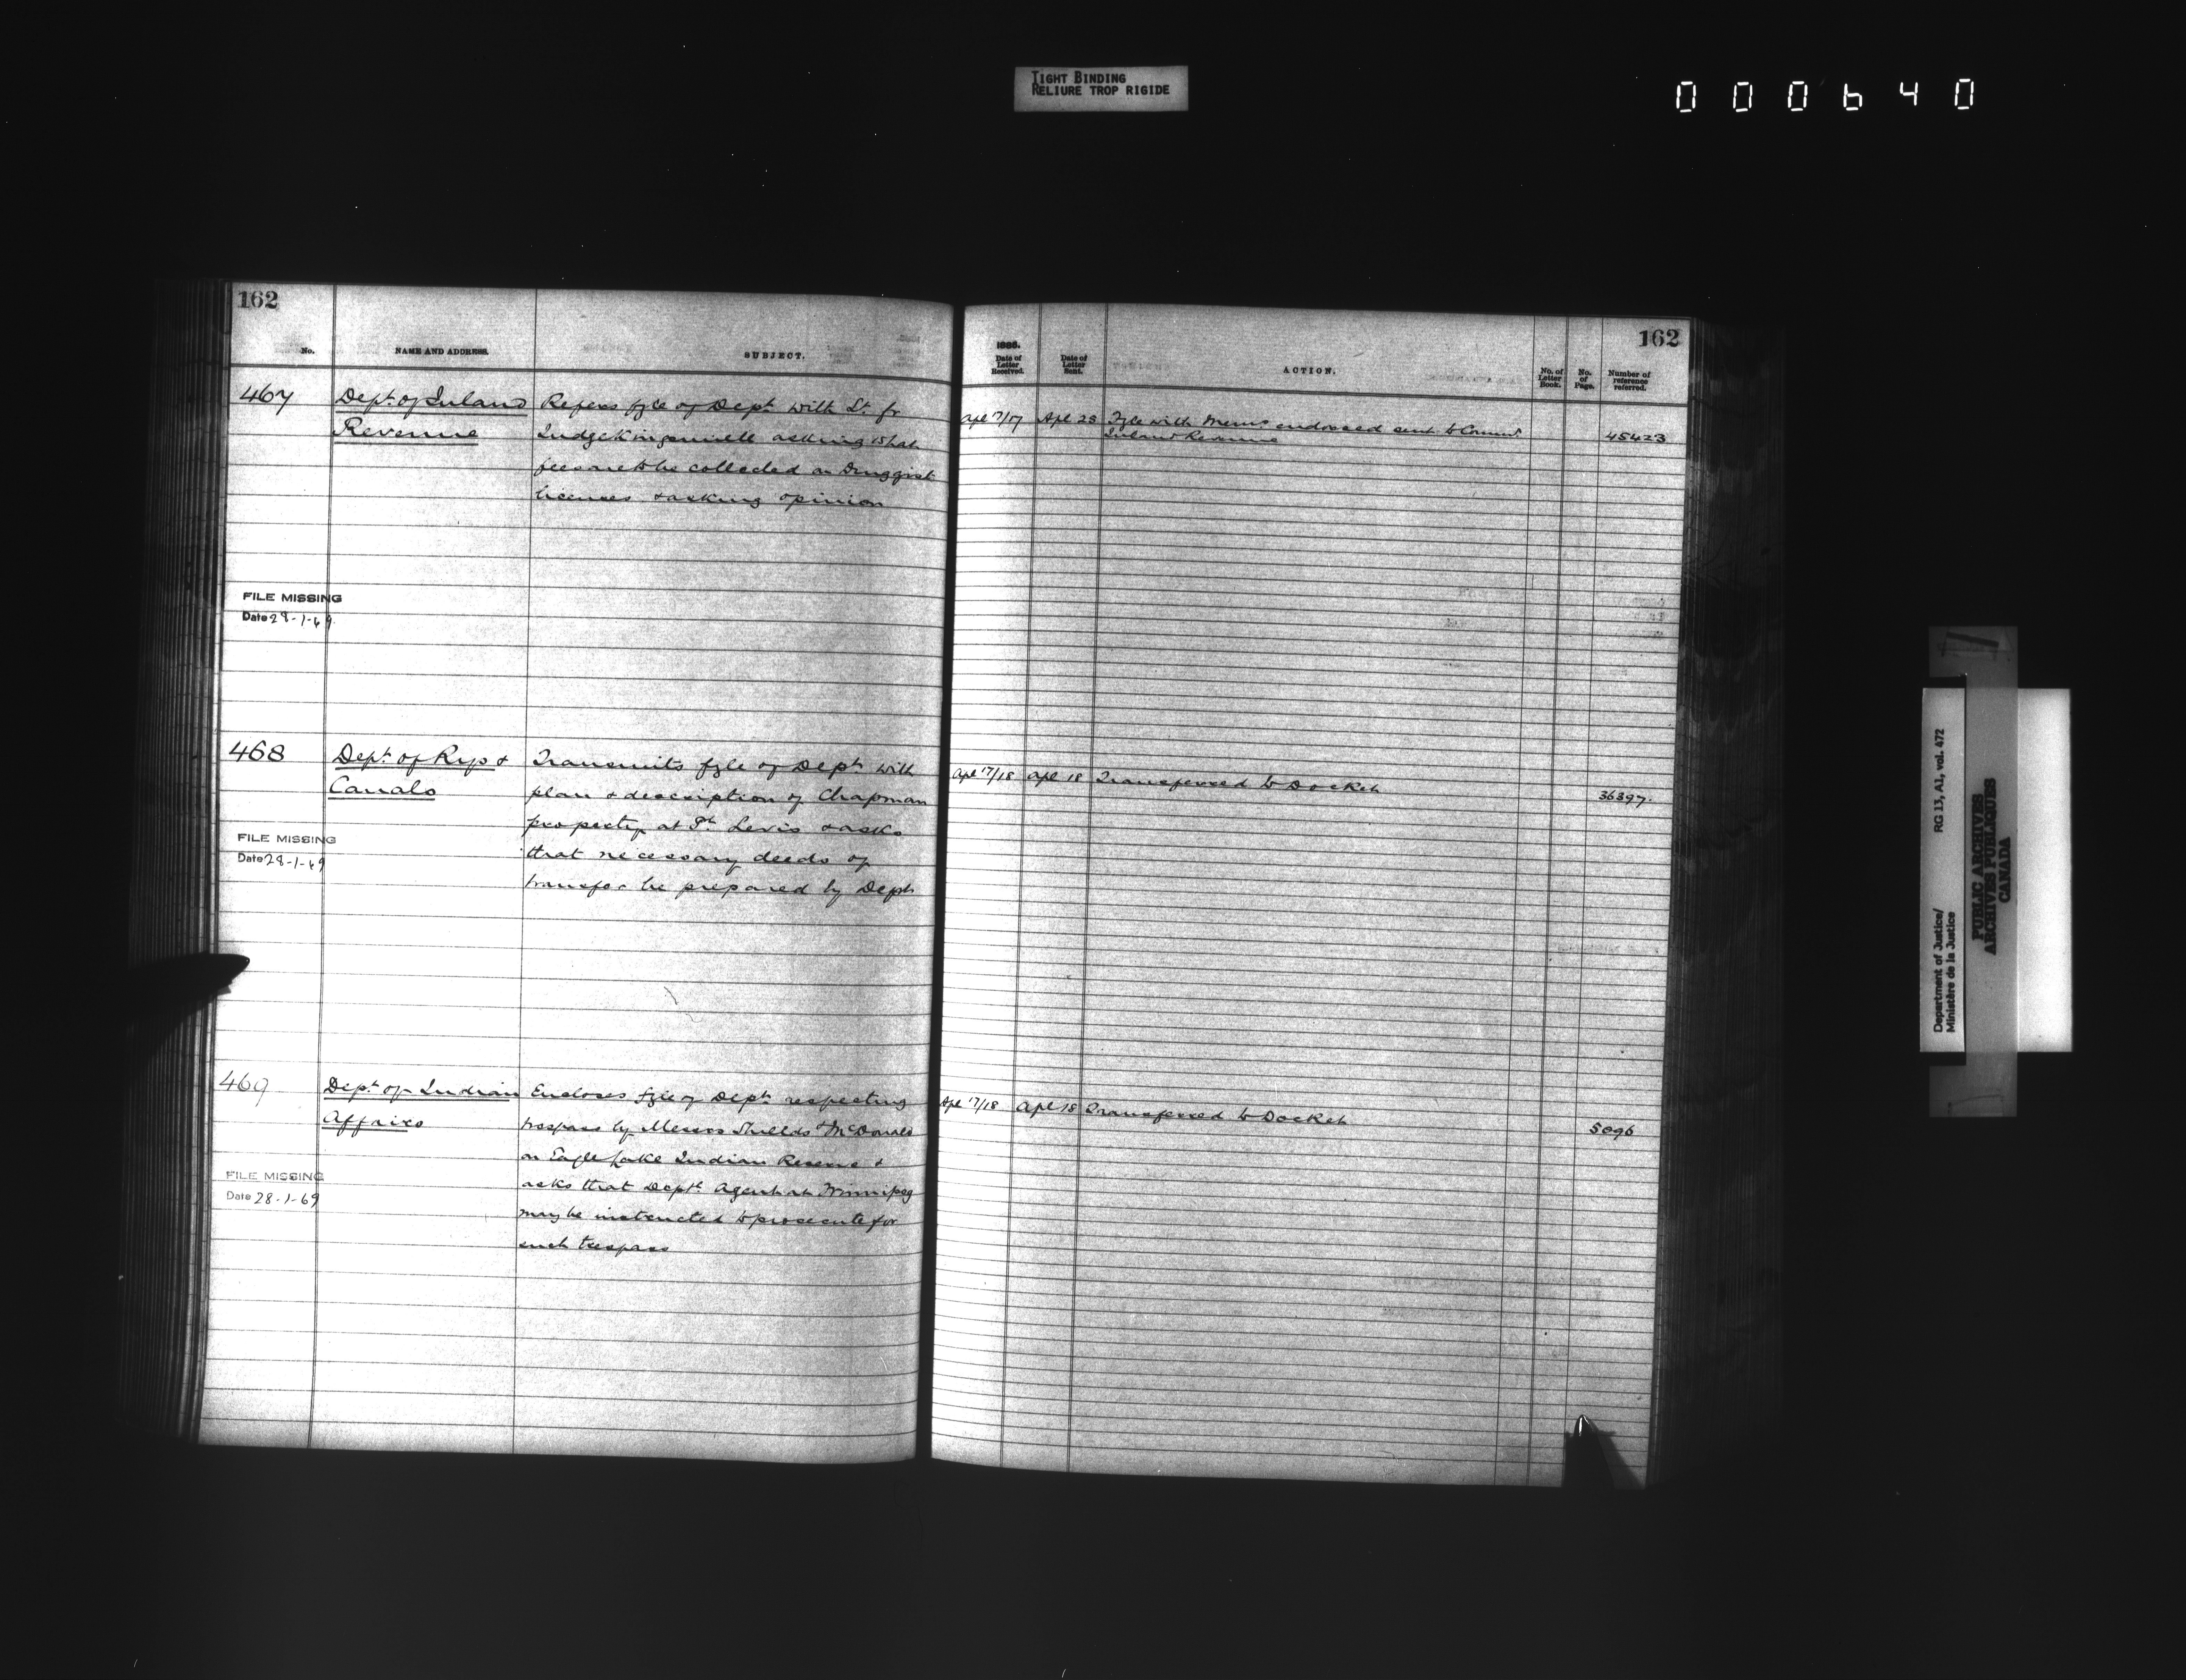 TIGHT BINDING
RELIURE TROP RIGIDE
000640
162
No.
NAME AND ADDRESS.
SUBJECT.
467
Dept. of Inland
Revenue
Refers fyle of Dept. with Lt. fr
Judge asking what
fees are to be collected on Druggist
licenses & asking opinion
FILE MISSING
Date 29-1-69
468
Dept. of Rys &
Canals
Transmits fyle of Dept. with
plan & description of Chapman
property at Pt. Levis & asks
that necessary deeds of
transfer be prepared by Dept
FILE MISSING
Date 28-1-69
469
Dept. of Indian
Affairs
Encloses fyle of Dept. respecting
trespass by Messrs Shields & McDonald
on Eagle Lake Indian Reserve &
asks that Dept. Agent at Winnipeg
may be instructed to prosecute for
such trespass
FILE MISSING
Date 28-1-69
162
1886.
Date of Letter Received.
Date of Letter Sent.
ACTION.
No. of Letter Book.
No. of Page.
Number of reference referred.
Apl 17/17 Apl 23 Fyle with Memo. endorsed sent to Commr.
Inland Revenue
45423
Apl 17/18 Apl 18 Transferred to Docket
36397.
Apl 17/18 Apl 18 Transferred to Docket
5096
Department of Justice/
Ministère de la Justice
RG 13, A1, vol. 472
PUBLIC ARCHIVES
ARCHIVES PUBLIQUES
CANADA